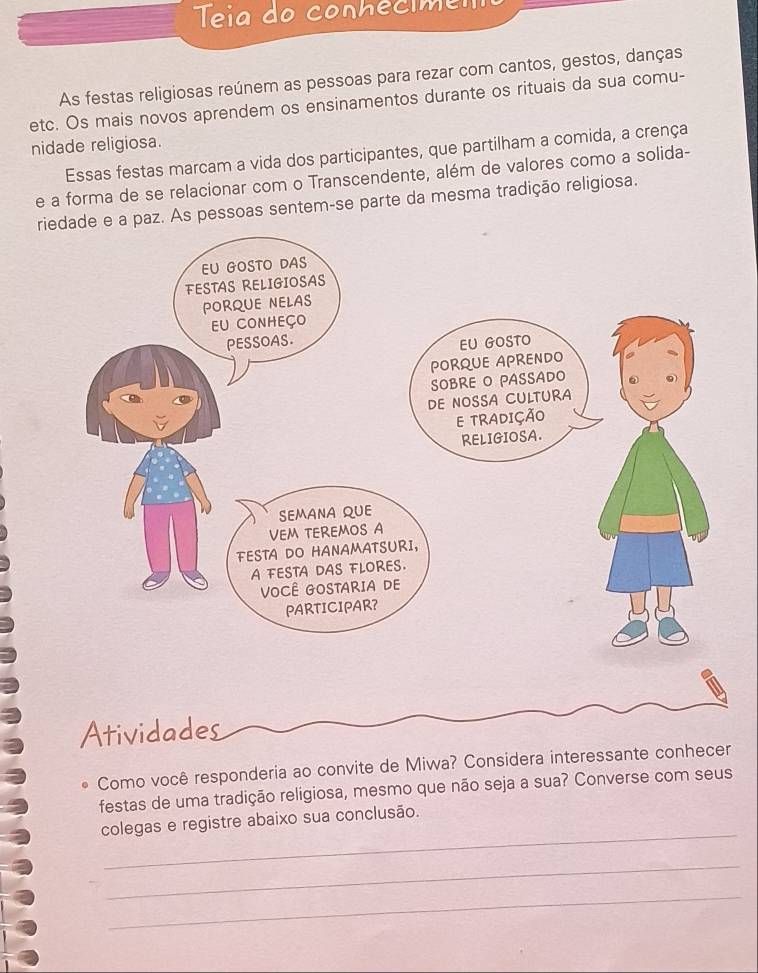 Teia do conhecimento
As festas religiosas reúnem as pessoas para rezar com cantos, gestos, danças
etc. Os mais novos aprendem os ensinamentos durante os rituais da sua comu-
nidade religiosa.
Essas festas marcam a vida dos participantes, que partilham a comida, a crença
e a forma de se relacionar com o Transcendente, além de valores como a solida-
riedade e a paz. As pessoas sentem-se parte da mesma tradição religiosa.
EU GOSTO DAS
FESTAS RELIGIOSAS
PORQUE NELAS
EU CONHEÇO
PESSOAS.
EU GOSTO
PORQUE APRENDO
SOBRE O PASSADO
DE NOSSA CULTURA
E TRADIÇÃO
RELIGIOSA.
SEMANA QUE
VEM TEREMOS A
FESTA DO HANAMATSURI,
A FESTA DAS FLORES.
VOCÊ GOSTARIA DE
PARTICIPAR?
Atividades
• Como você responderia ao convite de Miwa? Considera interessante conhecer
festas de uma tradição religiosa, mesmo que não seja a sua? Converse com seus
colegas e registre abaixo sua conclusão.